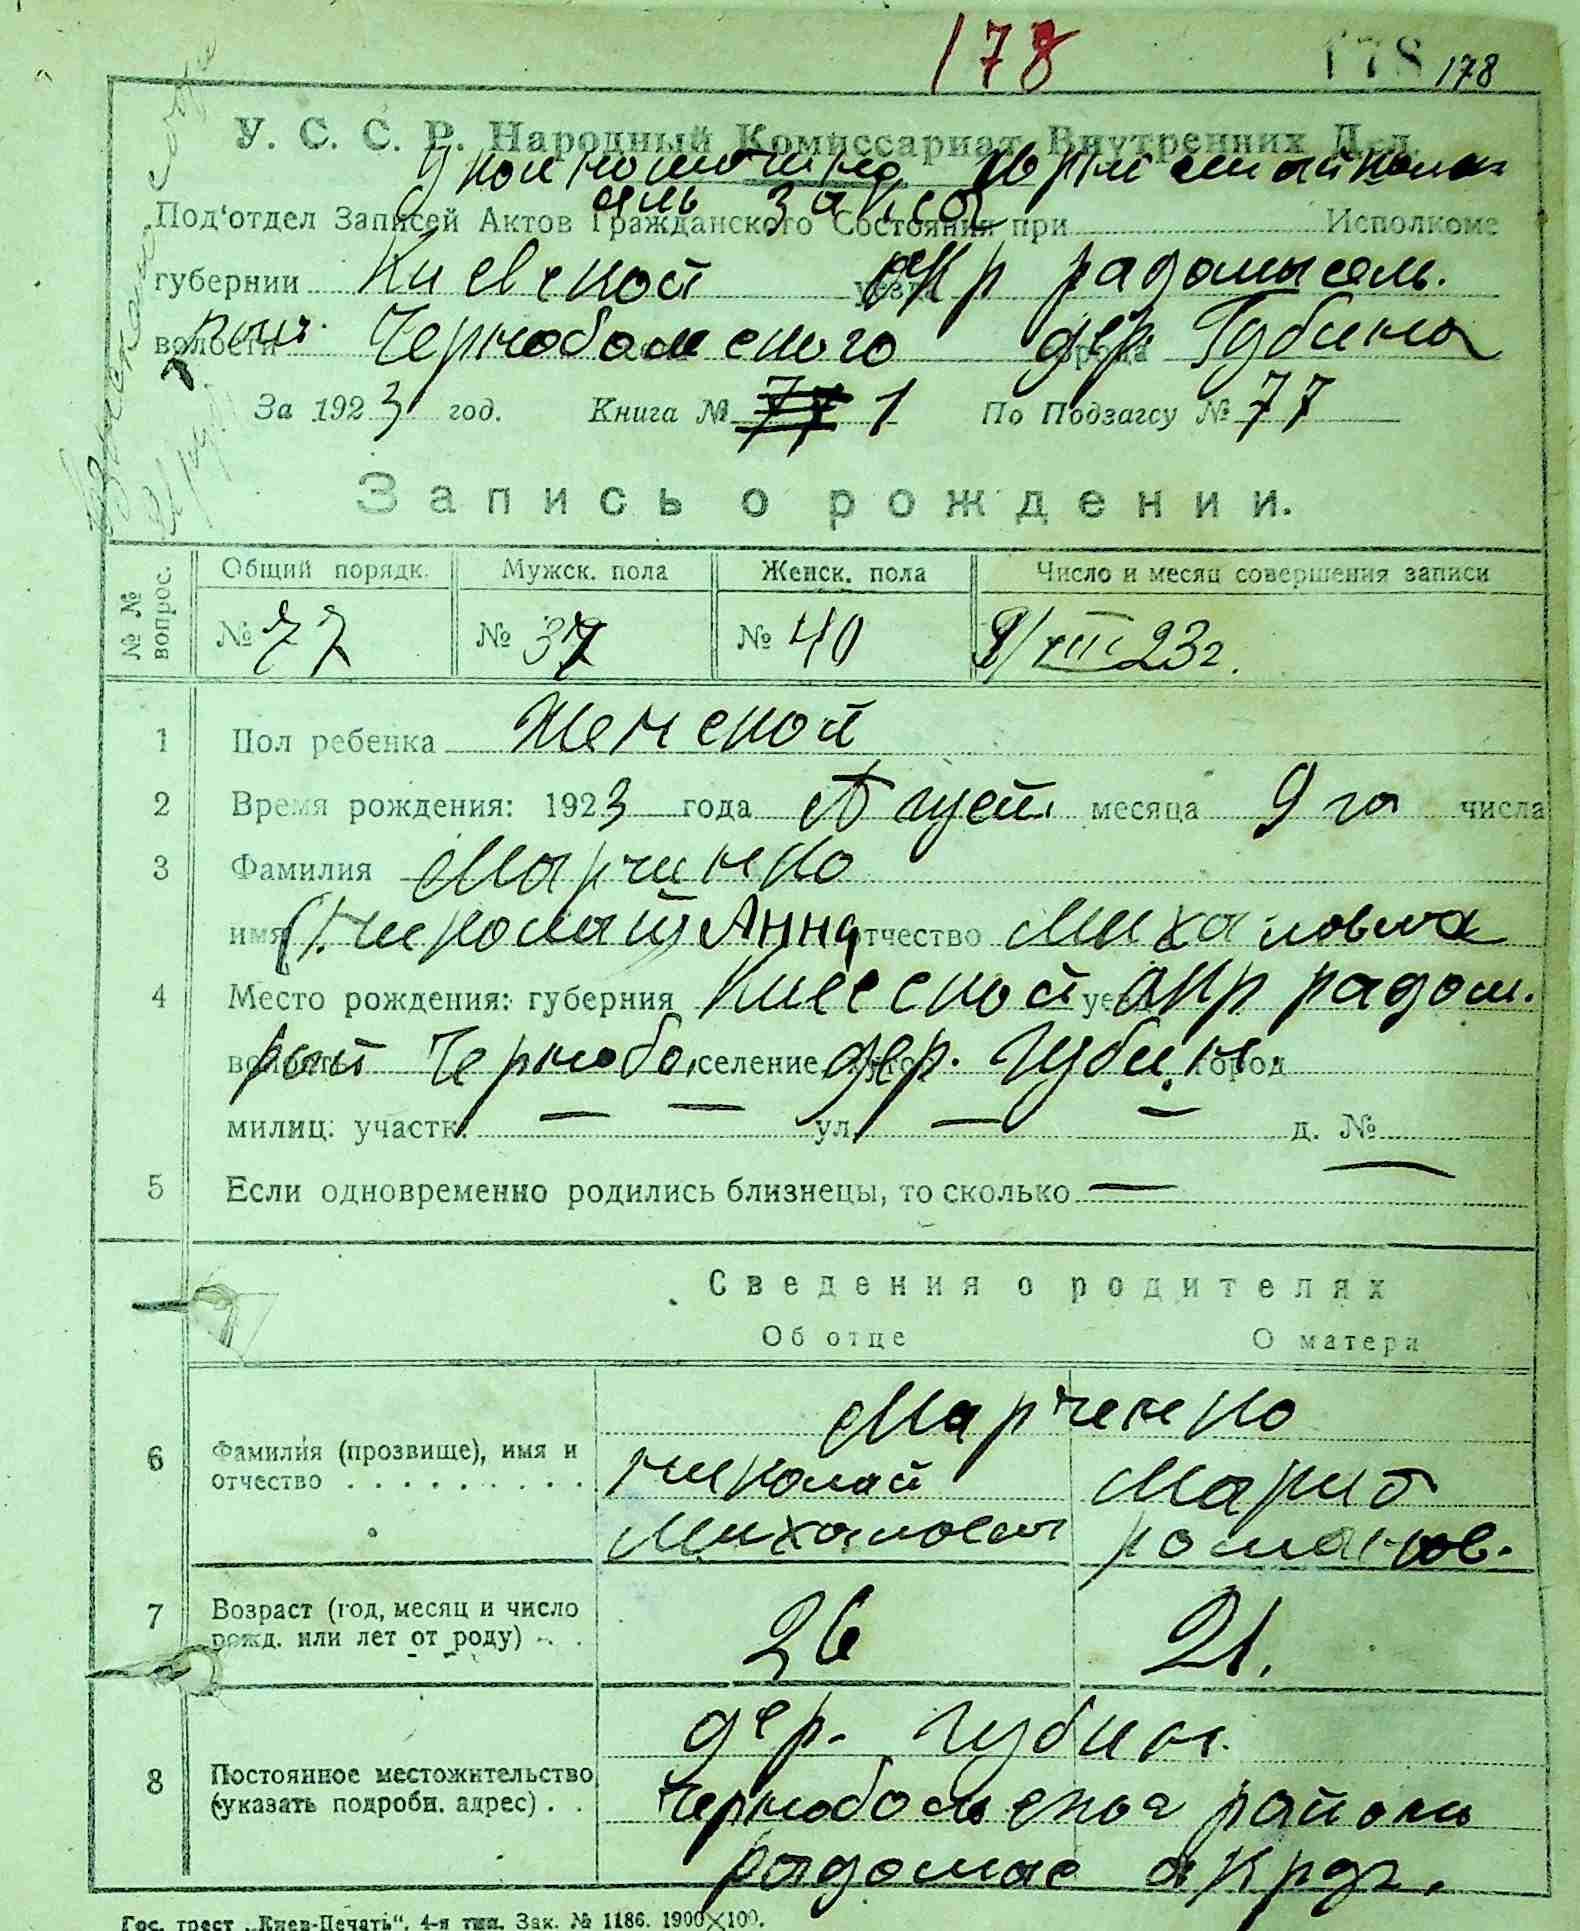 178
178 178
У. С. С. Р. Народный Комиссариат Внутренних Дел.
Под'отдел Записей Актов Гражданского Состояния при Исполкоме
губернии Киевской уезда окр радомысль.
волости Чернобольского города дер. Губина
За 1923 год. Книга № 77 1 По Подзагсу № 77
Запись о рождении.
№ № вопрос. Общий порядк. Мужск. пола Женск. пола Число и месяц совершения записи
№ 77 № 37 № 40 23г.
1 Пол ребенка Женской
2 Время рождения: 1923 года Август месяца 9 го числа
3 Фамилия Марчинко
имя (Николай) Анна отчество Михаловна
4 Место рождения: губерния Киевской уезд окр радом.
волость рай Чернобо. селение дер. Губин. город
милиц. участк. — — ул. — — д. № —
5 Если одновременно родились близнецы, то сколько —
Сведения о родителях
Об отце О матери
Марченко
6 Фамилия (прозвище), имя и отчество . . . . . . . . . Николай Мария
Михалович романов.
7 Возраст (год, месяц и число рожд. или лет от роду) - . . 26 21.
дер. Губин.
8 Постоянное местожительство (указать подробн. адрес) . . Чернобольского района
радомыс округ.
Гос. трест „Киев-Печать“, 4-я тип. Зак. № 1186. 1900×100.